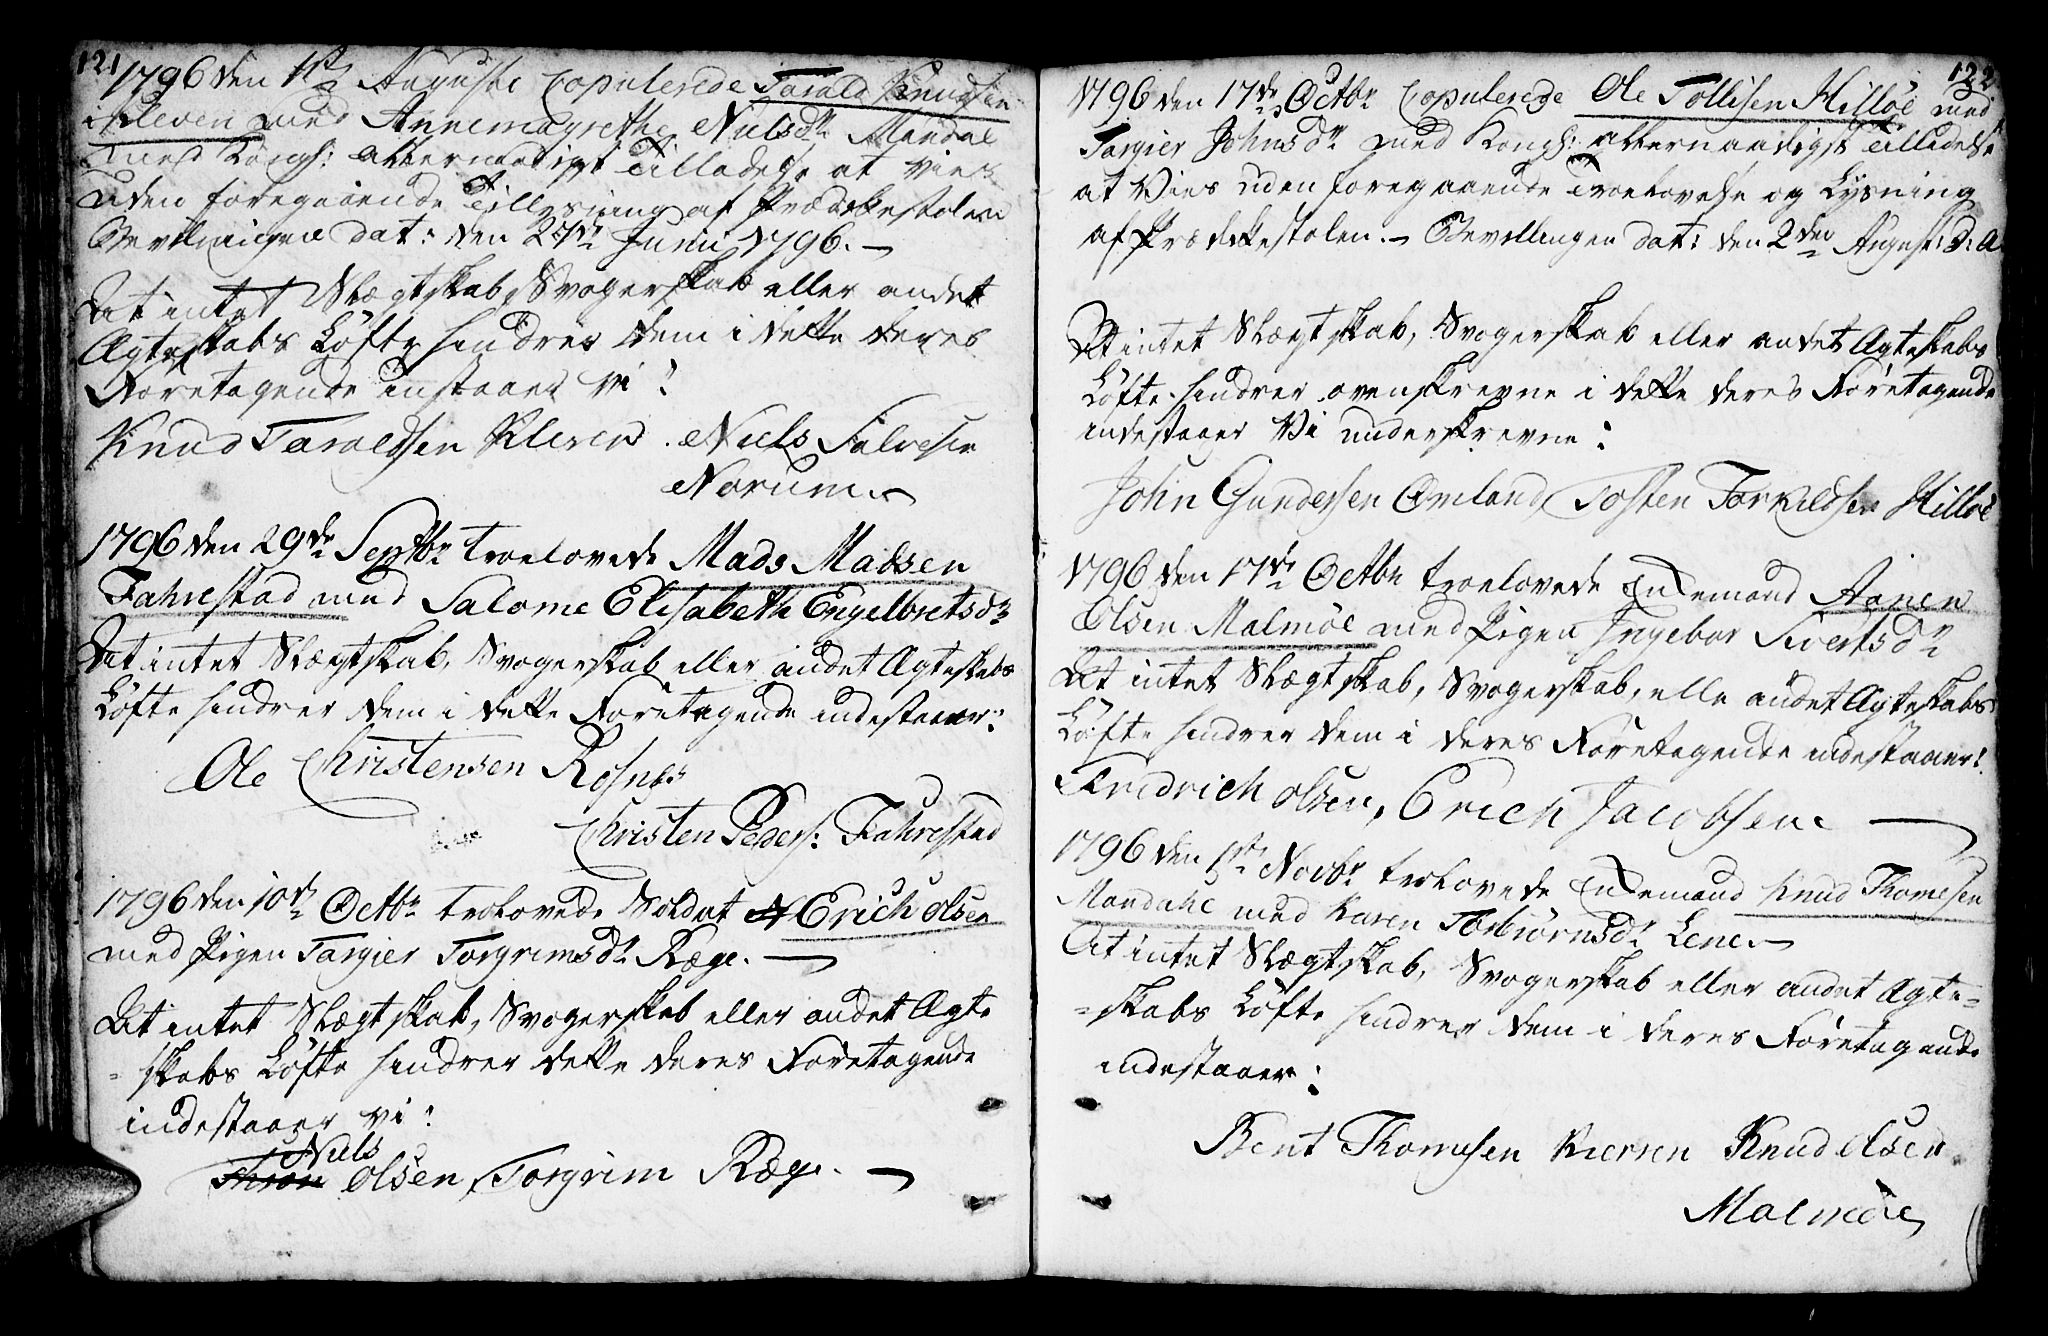 121
1796 den 1ste Augusti Copulerede Tarald Knudsen
i Kleven med Annemagrethe Nielsdr Mandal
med Kongl: allernaadigst Tilladelse at vies
uden foregaaende Tillysning af Prædikestolen
Bevilningen dat: den 24de Junii 1796. –
At intet Slægtskab, Svogerskab eller andet
Ægteskabs Løfte hindrer dem i dette deres
Foretagende indstaaer vi:
Knud Taraldsen Kleven. Niels Salvesen
Norum
1796 den 29de Septbr troelovede Mads Madsen
Fahrestad med Salome Elisabeth Engelbretsdr
At intet Slægtskab, Svogerskab eller andet Ægteskabs
Løfte hindrer dem i dette Foretagende indestaaer:
Ole Christensen Rosnes
Christen Peders: Fahrestad
1796 den 10de Octbr trolovede Soldat Erich Olsen
med Pigen Targier Torgrimsdr Ræge. –
At intet Slægtskab, Svogerskab eller andet Ægte
=skabs Løfte hindrer dette deres Foretagende
indestaaer vi:
Niels
Thron Olsen, Torgrim Ræge. –
122
1796 den 17de Octbr Copulerede Ole Tollisen Hilløe med
Targier Johnsdr med Kongl: allernaadigst Tilladelse
at Vies uden foregaaende Troelovelse og Lysning
af Prædikestolen. – Bevillingen dat: den 2den August: d: A
At intet Slægtskab, Svogerskab eller andet Ægteskabs
Løfte hindrer ovenskrevne i dette deres Foretagende
indestaaer Vi underskrevne:
John Gundersen Omland, Tosten Torkildsen Hilløe
1796 den 17de Octbr troelovede Enkemand Aanen
Olsen Malmøe med Pigen Ingebor Sivertsdr
At intet Slægtskab, Svogerskab, elle andet Ægteskabs
Løfte hindrer dem i deres Foretagende indestaaer:
Fredrich Olsen, Erich Jacobsen –
1796 den 1ste Novbr trolovede Enkemand Knud Thomesen
Mandahl med Karen Torbiørnsdr Lene –
At intet Slægtskab, Svogerskab eller andet Ægte=
=skabs Løfte hindrer dem i deres Foretagende
indestaaer:
Bent Thomesen Knud Olsen
Malmøe